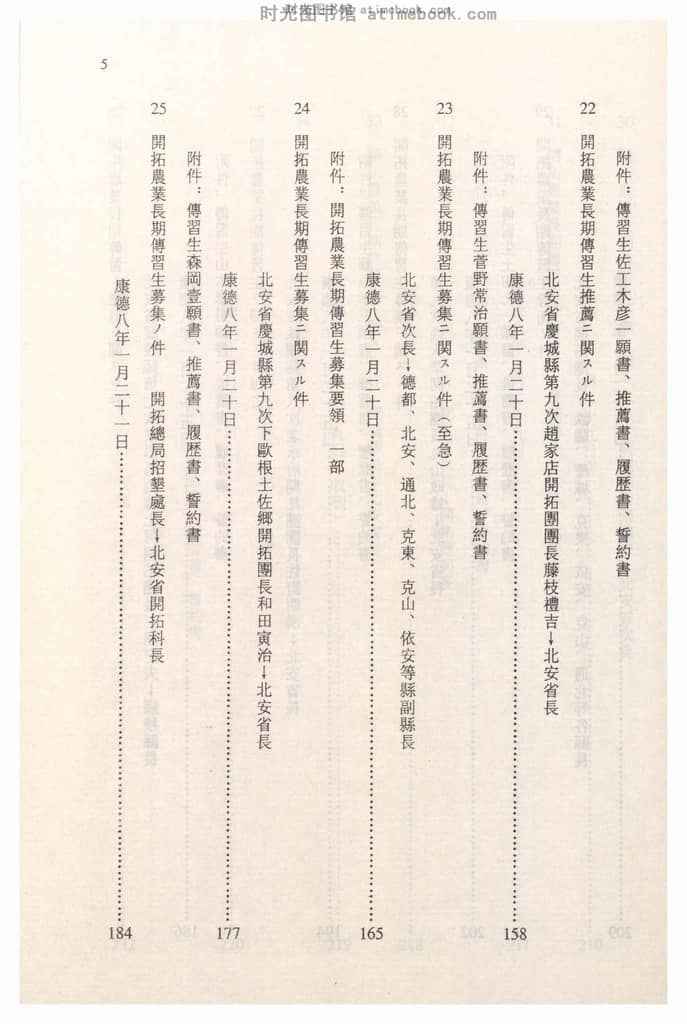 时光图书馆 atimebook.com
5
附件：傳習生佐工木彦一願書、推薦書、履歴書、誓約書
22 開拓農業長期傳習生推薦ニ関スル件
北安省慶城縣第九次趙家店開拓團團長藤枝禮吉→北安省長
康德八年一月二十日……158
附件：傳習生菅野常治願書、推薦書、履歴書、誓約書
23 開拓農業長期傳習生募集ニ関スル件（至急）
北安省次長→德都、北安、通北、克東、克山、依安等縣副縣長
康德八年一月二十日……165
附件：開拓農業長期傳習生募集要領 一部
24 開拓農業長期傳習生募集ニ関スル件
北安省慶城縣第九次下歐根土佐郷開拓團長和田寅治→北安省長
康德八年一月二十日……177
附件：傳習生森岡壹願書、推薦書、履歴書、誓約書
25 開拓農業長期傳習生募集ノ件 開拓總局招墾處長→北安省開拓科長
康德八年一月二十一日……184